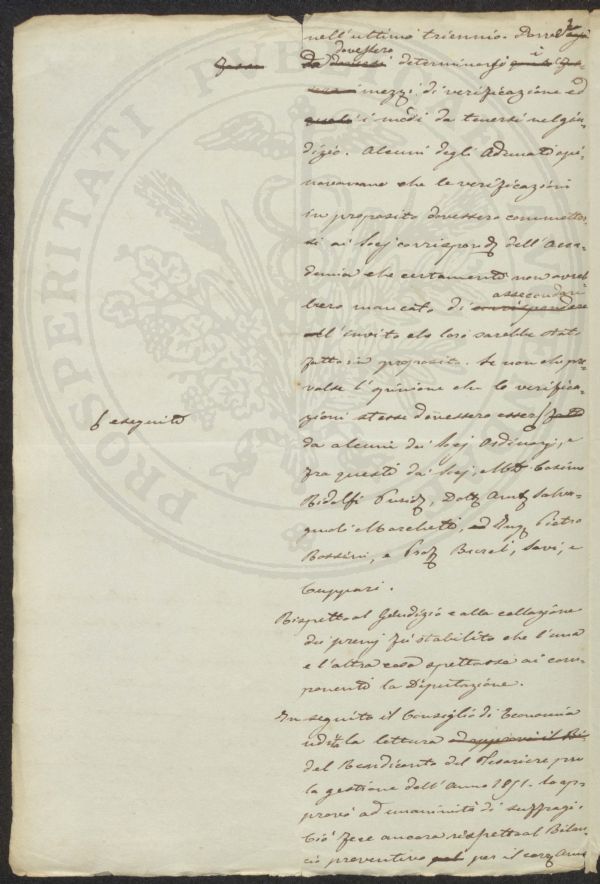 nell'ultimo triennio.
dovessero
determinarsi i
mezzi di verificazione ed
i modi da tenersi nel giu-
dizio. Alcuni degli Adunati opi-
navano che le verificazioni
in proposito dovessero commetter-
si ai Socj corrispond. dell'Acca-
demia che certamente non avreb-
assecondare
bero mancato di corrispondere
all'invito che loro sarebbe stato
fatto in proposito. Se non che pre-
valse l'opinione che le verifica-
zioni stesse dovessero esser
eseguite
da alcuni dei Socj Ordinarj, e
fra questi dai Socj, Mse Cosimo
Ridolfi Presid., Dott. Ant. Salva-
gnoli Marchetti, ed Ing. Pietro
Rossini, e Prof. Burci, Savi, e
Cuppari.
Rispetto al Giudizio e alla collazione
dei premj fù stabilito che l'una
e l'altra cosa spettasse ai com-
ponenti la Deputazione.
In seguito il Consiglio di Economia
udita la lettura ed approvò il Bi-
del Rendiconto del Tesoriere per
la gestione dell'Anno 1851. lo ap-
provò ad unanimità di suffragi.
Ciò fece ancora rispetto al Bilan-
cio preventivo per il corr. Anno
PROSPERITATI PUBLICAE